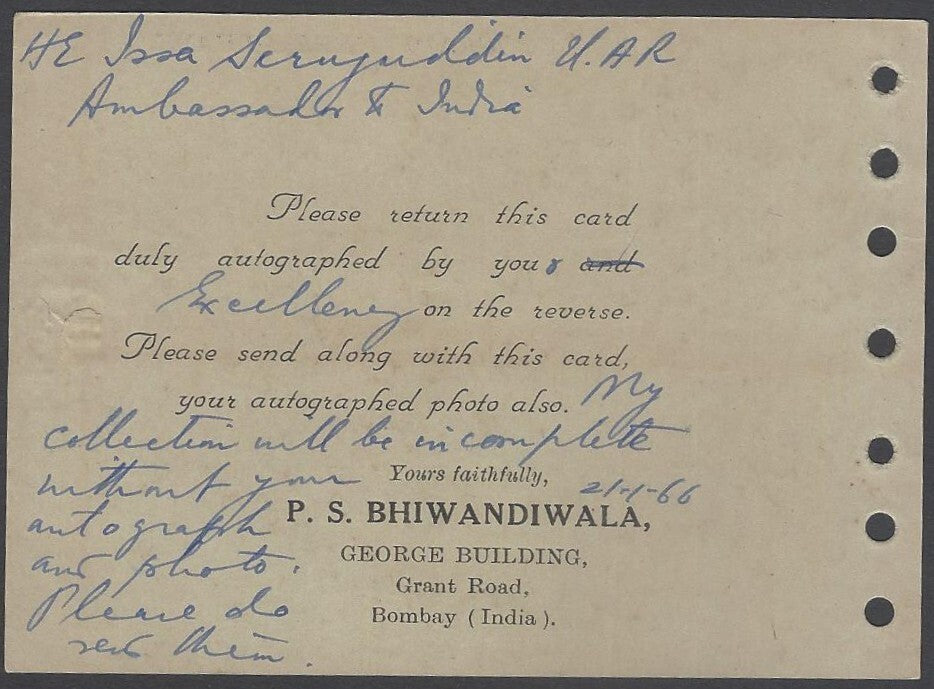 HE Issa Serujuddin U.A.R
Ambassador to India
Please return this card
duly autographed by your and
Excellency on the reverse.
Please send along with this card,
your autographed photo also. My
collection will be incomplete
without your
Yours faithfully,
21-1-66
autograph
P. S. BHIWANDIWALA,
and photo.
GEORGE BUILDING,
Grant Road,
Please do
Bombay (India).
send them.